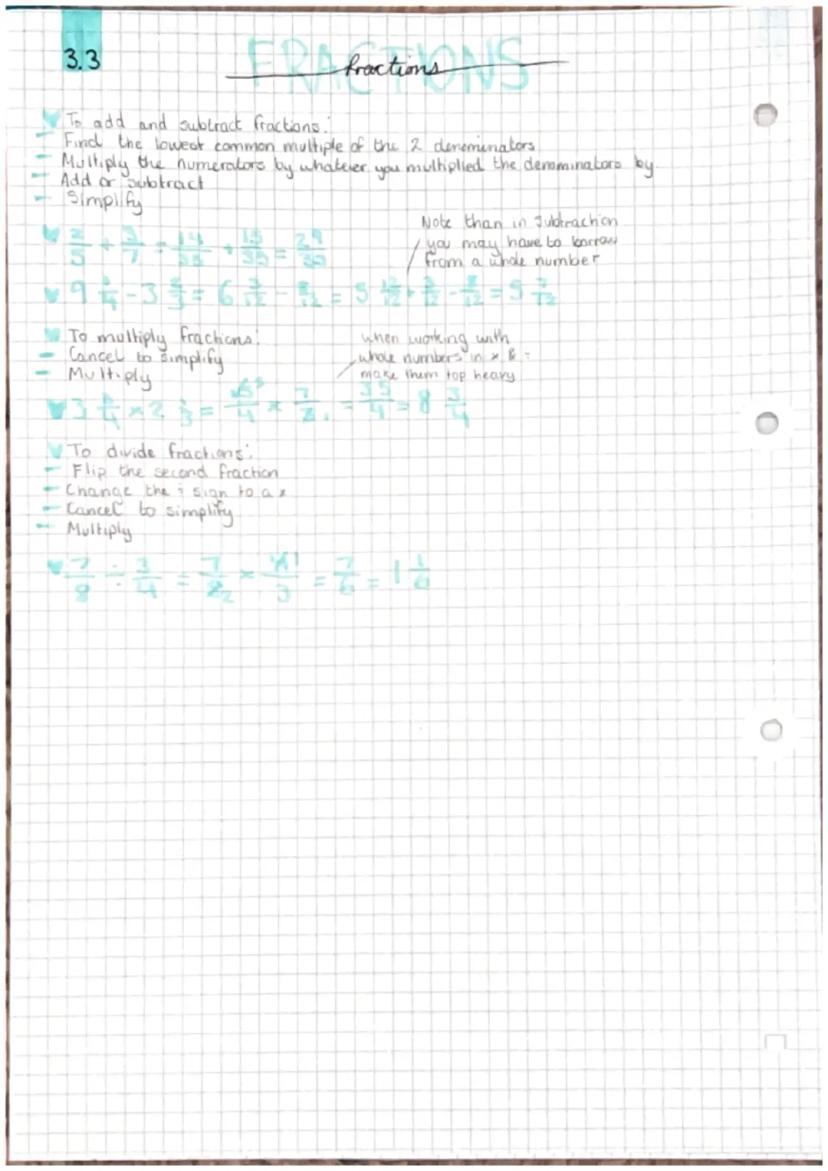 3.3
FRACTIONS
fractions
To add and subtract fractions:
- Find the lowest common multiple of the 2 denominators
- Multiply the numerators by whatever you multiplied the denominators by.
- Add or subtract
- Simplify
Note than in subtraction
you may have to borrow
from a whole number
2/5 + 3/7 = 14/35 + 15/35 = 29/35
9 1/4 - 3 2/3 = 6 3/12 - 8/12 = 5 12/12 + 3/12 - 8/12 = 5 7/12
To multiply fractions:
- Cancel to simplify
- Multiply
when working with
whole numbers in × & ÷
make them top heavy
3 3/4 × 2 1/3 = 15 5/4 × 7/3 1 = 35/4 = 8 3/4
To divide fractions:
- Flip the second fraction
- Change the ÷ sign to a x
- Cancel to simplify
- Multiply
7/8 ÷ 3/4 = 7/8 2 × 4 1/3 = 7/6 = 1 1/6